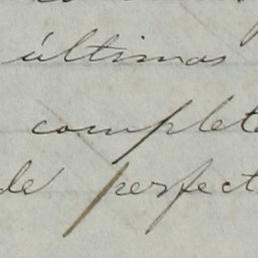 últimos
complet
de perfect